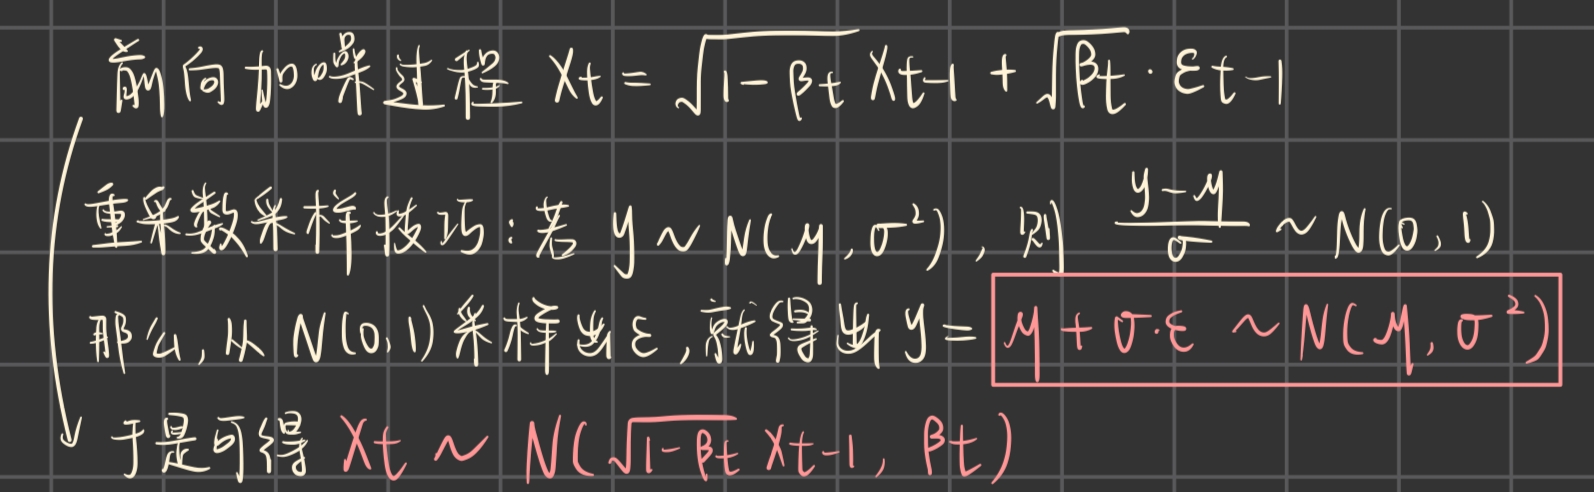 前向加噪过程 Xt = √(1-βt) Xt-1 + √βt · εt-1
重采数采样技巧：若 y ~ N(μ, σ²)，则 (y-μ)/σ ~ N(0, 1)
那么, 从 N(0,1) 采样出 ε, 就得出 y = μ + σ·ε ~ N(μ, σ²)
于是可得 Xt ~ N(√(1-βt) Xt-1, βt)